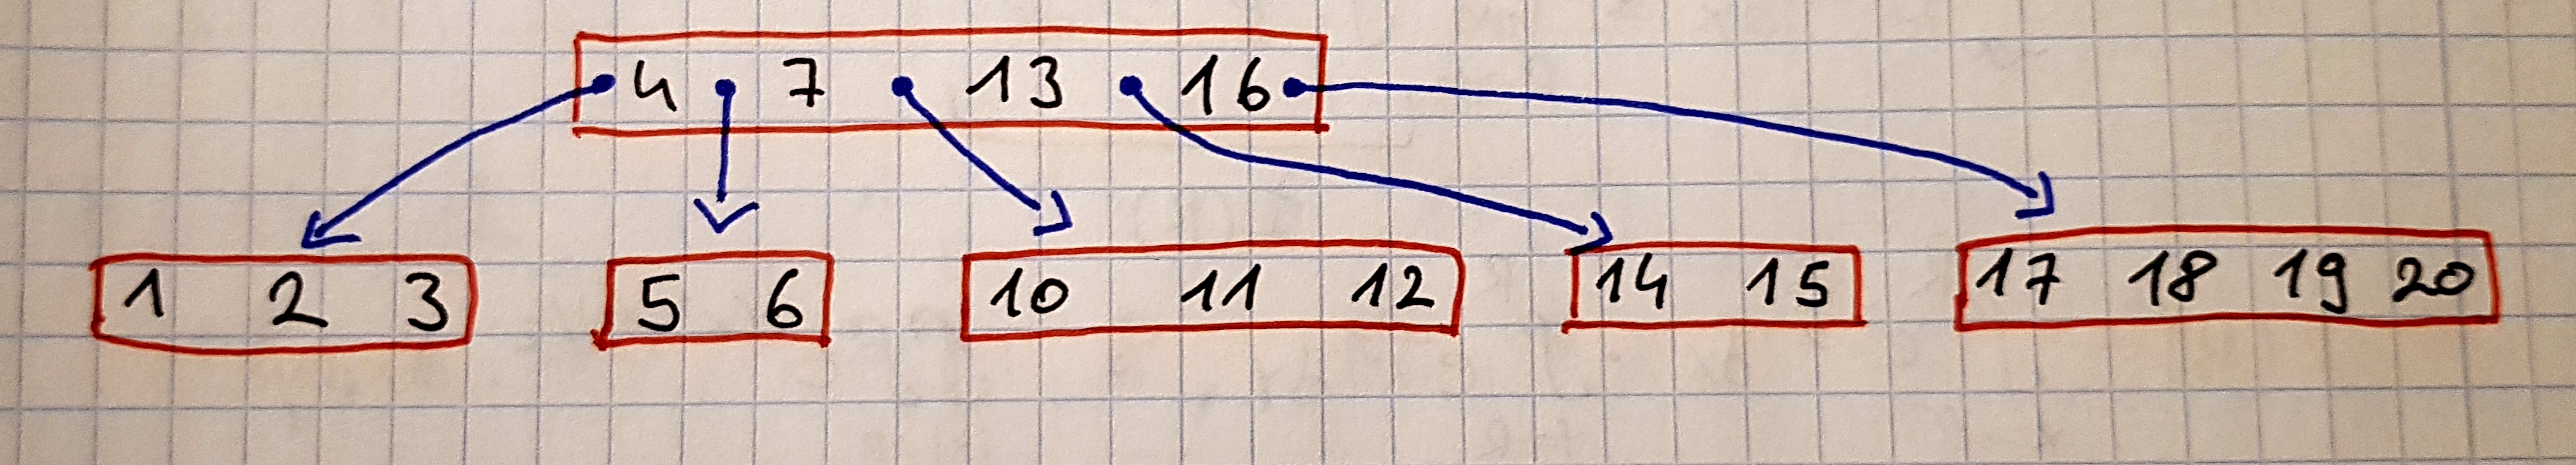 4 7 13 16
1 2 3 5 6 10 11 12 14 15 17 18 19 20